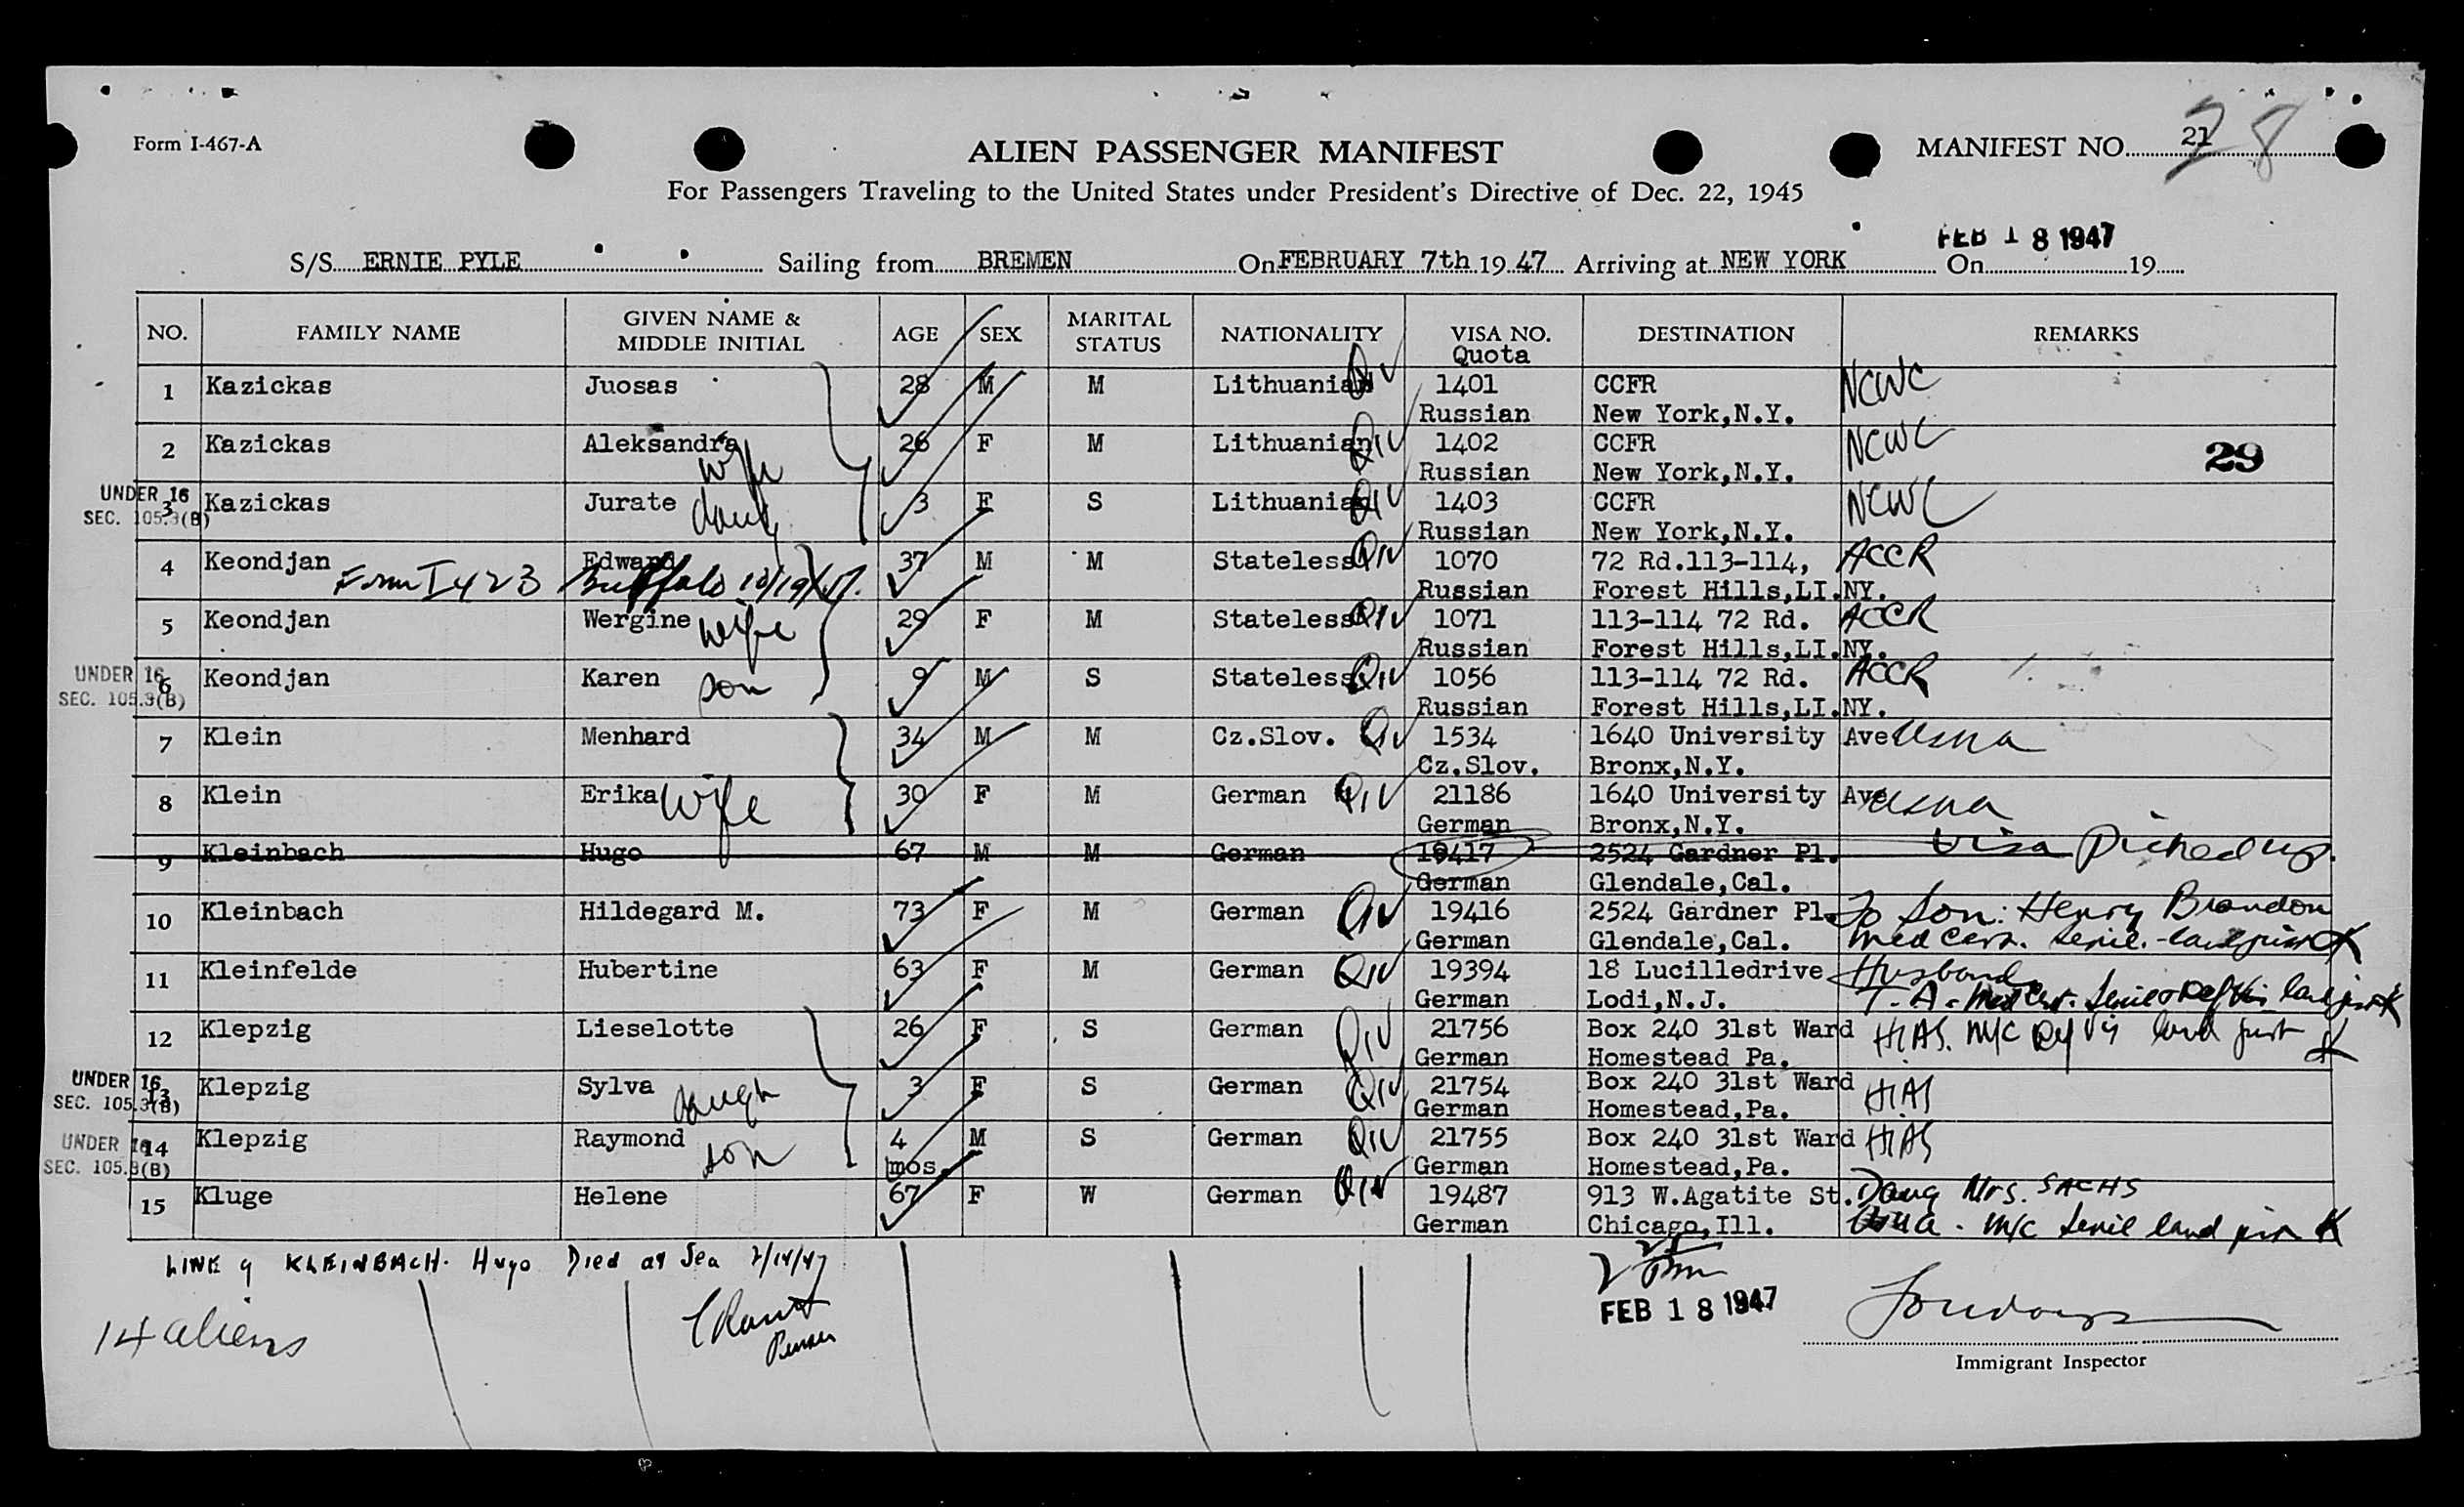 Form I-467-A
ALIEN PASSENGER MANIFEST
MANIFEST NO. 21
28
For Passengers Traveling to the United States under President's Directive of Dec. 22, 1945
FEB 18 1947
S/S ERNIE PYLE Sailing from BREMEN On FEBRUARY 7th 19 47 Arriving at NEW YORK On 19
NO. FAMILY NAME GIVEN NAME & MIDDLE INITIAL AGE SEX MARITAL STATUS NATIONALITY VISA NO. Quota DESTINATION REMARKS
1 Kazickas Juosas 28 M M Lithuanian QIV 1401 CCFR NCWC
Russian New York,N.Y.
2 Kazickas Aleksandra wife 26 F M Lithuanian QIV 1402 CCFR NCWC
Russian New York,N.Y. 29
UNDER 16 SEC. 105.3(B)
3 Kazickas Jurate daug 3 F S Lithuanian QIV 1403 CCFR NCWC
Russian New York,N.Y.
4 Keondjan Edward 37 M M Stateless QIV 1070 72 Rd.113-114, ACCR
Form I 423 Buffalo Russian Forest Hills,LI.NY.
5 Keondjan Wergine wife 29 F M Stateless QIV 1071 113-114 72 Rd. ACCR
Russian Forest Hills,LI.NY.
UNDER 16 SEC. 105.3(B)
6 Keondjan Karen son 9 M S Stateless QIV 1056 113-114 72 Rd. ACCR
Russian Forest Hills,LI.NY.
7 Klein Menhard 34 M M Cz.Slov. QIV 1534 1640 University Ave usna
Cz.Slov. Bronx,N.Y.
8 Klein Erika wife 30 F M German QIV 21186 1640 University Ave usna
German Bronx,N.Y.
9 Kleinbach Hugo 67 M M German 19417 2524 Gardner Pl. Visa Picked up.
German Glendale,Cal.
10 Kleinbach Hildegard M. 73 F M German QIV 19416 2524 Gardner Pl. To Son: Henry Brandon
German Glendale,Cal. Med Cert. Senil.
11 Kleinfelde Hubertine 63 F M German QIV 19394 18 Lucilledrive Husband
German Lodi,N.J. T.A.
12 Klepzig Lieselotte 26 F S German QIV 21756 Box 240 31st Ward HIAS. M/C
German Homestead Pa.
UNDER 16 SEC. 105.3(B)
13 Klepzig Sylva daugh 3 F S German QIV 21754 Box 240 31st Ward HIAS
German Homestead,Pa.
UNDER 16 SEC. 105.3(B)
14 Klepzig Raymond son 4 mos. M S German QIV 21755 Box 240 31st Ward HIAS
German Homestead,Pa.
15 Kluge Helene 67 F W German QIV 19487 913 W.Agatite St. Daug Mrs. SACHS
German Chicago,Ill. M/C Senil land
LINE 9 KLEINBACH. Hugo Died at Sea 2/14/47
14 aliens
Purser
FEB 18 1947
Immigrant Inspector